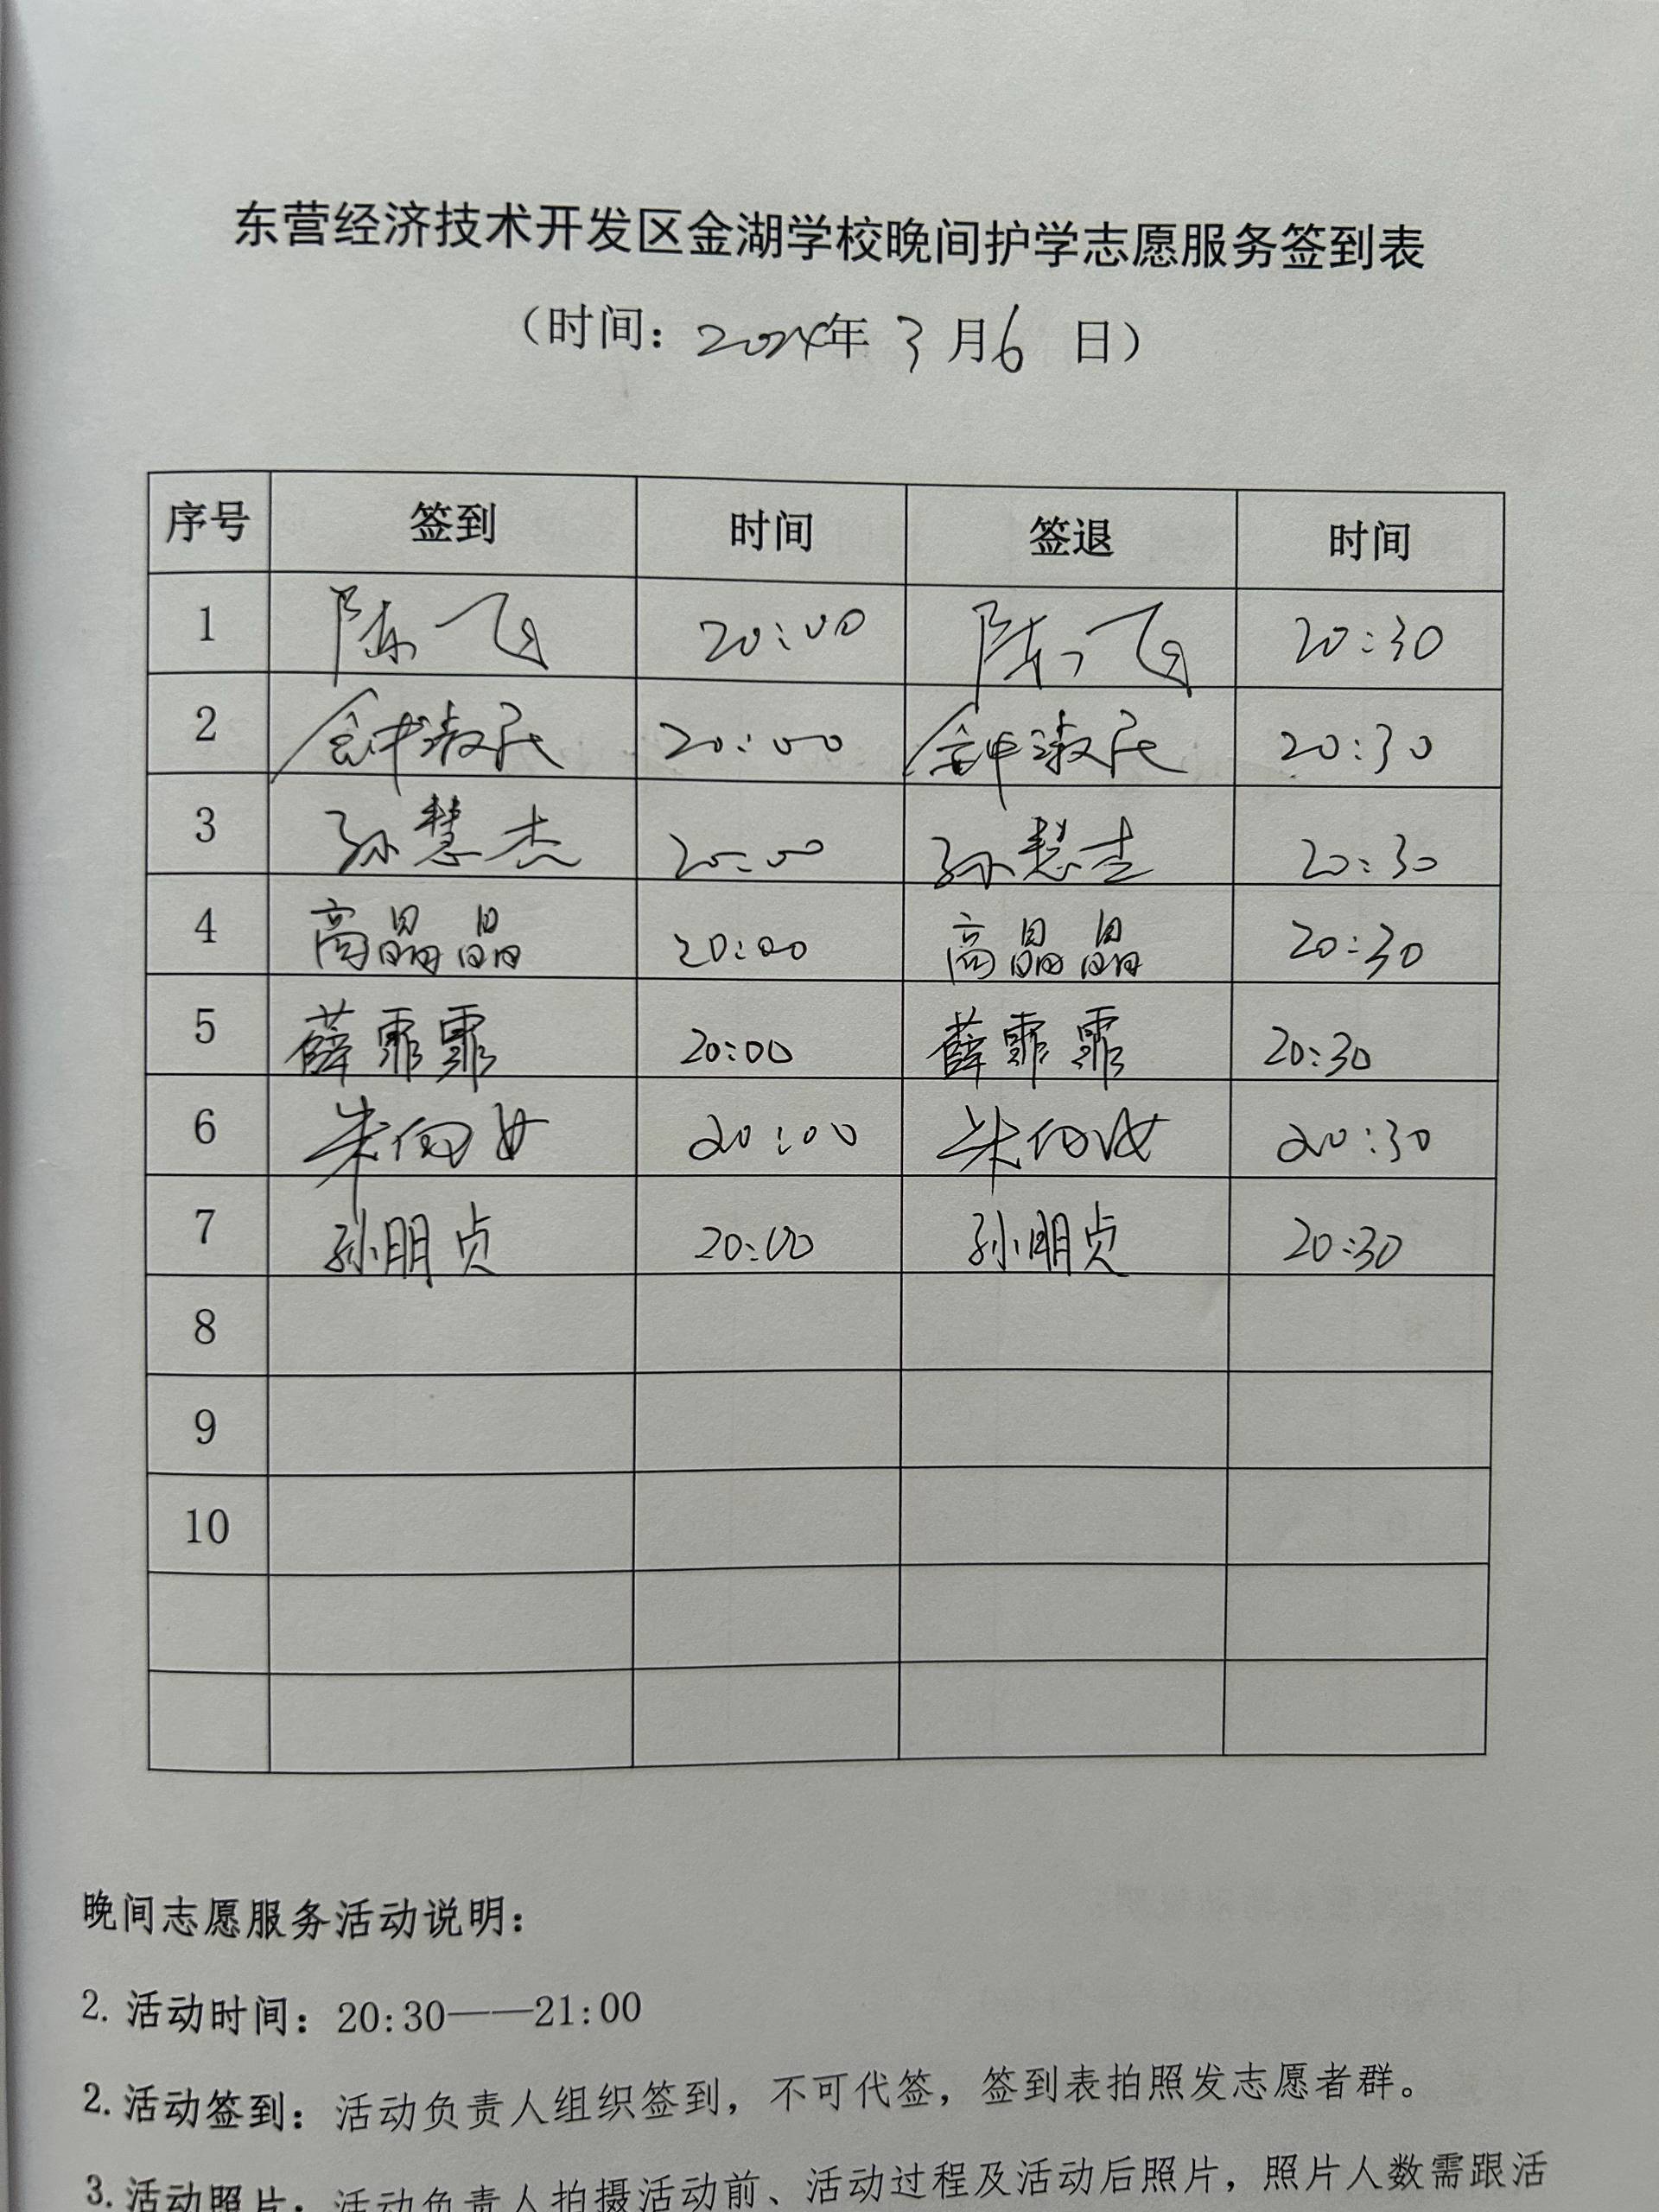 东营经济技术开发区金湖学校晚间护学志愿服务签到表
（时间：2024年 3 月 6 日）
序号 签到 时间 签退 时间
1 陈飞 20:00 陈飞 20:30
2 钟淑民 20:00 钟淑民 20:30
3 孙慧杰 20:00 孙慧杰 20:30
4 高晶晶 20:00 高晶晶 20:30
5 薛霏霏 20:00 薛霏霏 20:30
6 20:00 20:30
7 孙明贞 20:00 孙明贞 20:30
8
9
10
晚间志愿服务活动说明：
2. 活动时间：20:30——21:00
2. 活动签到：活动负责人组织签到，不可代签，签到表拍照发志愿者群。
3. 活动照片：活动负责人拍摄活动前、活动过程及活动后照片，照片人数需跟活